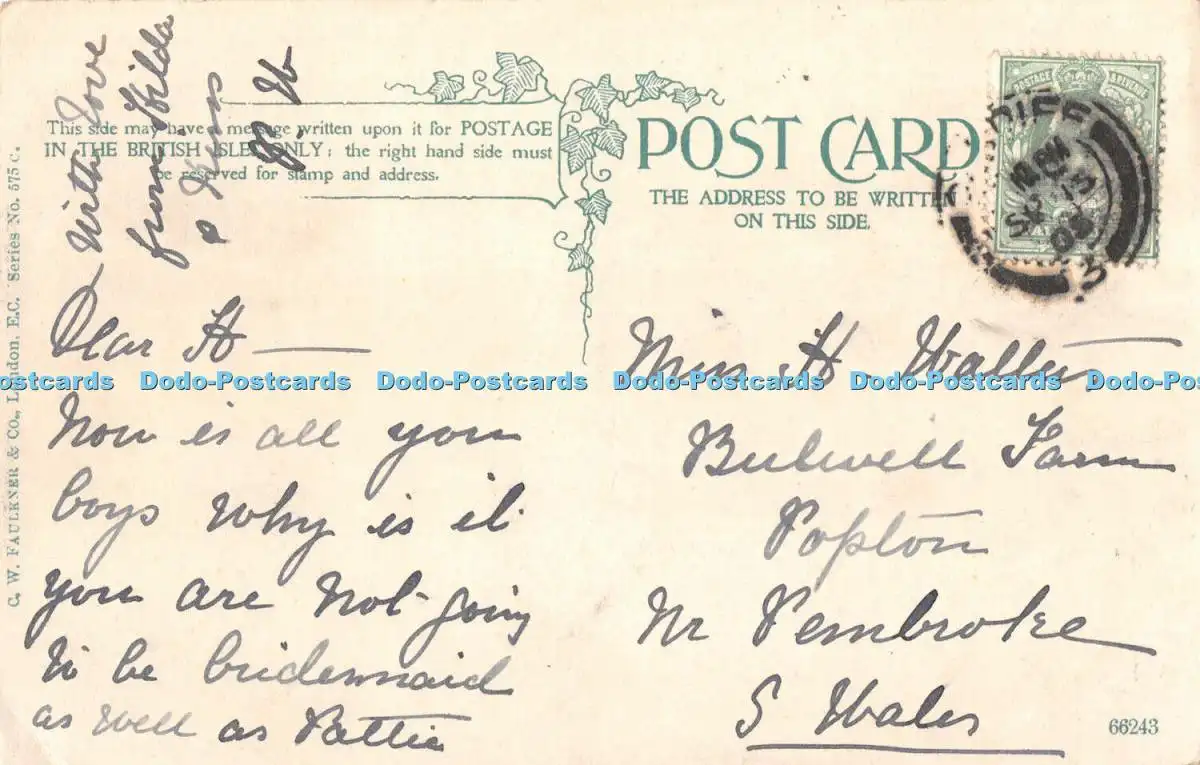 With love
from Hilda
This side may have a message written upon it for POSTAGE
IN THE BRITISH ISLES ONLY: the right hand side must
be reserved for stamp and address.
POST CARD
THE ADDRESS TO BE WRITTEN
ON THIS SIDE.
POSTAGE REVENUE
CARDIFF
SP 15
Dear H
How is all your
boys Why is it
you are not going
to be bridesmaid
as well as Pattie
Miss H. Walters
Bulwell Farm
Popton
Nr Pembroke
S Wales
66243
C. W. FAULKNER & Co., London, E.C. Series No. 575 C.
Dodo-Postcards Dodo-Postcards Dodo-Postcards Dodo-Postcards Dodo-Postcards Dodo-Postcards